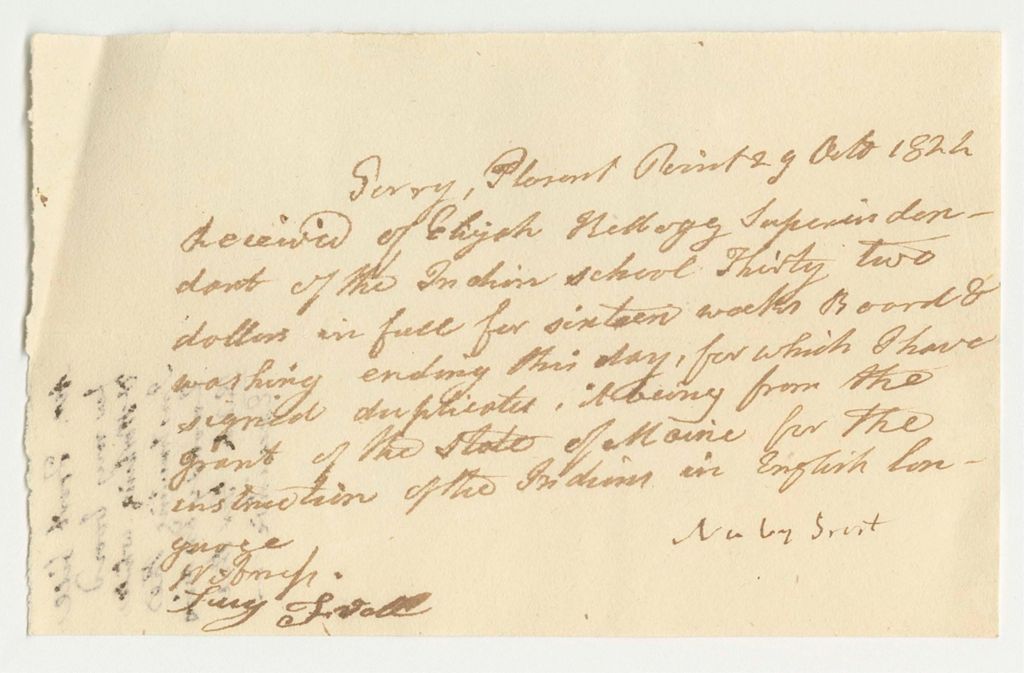 Perry, Plesent Point 29 Octo 1822
Received of Elijah Kellogg Superinden-
dant of the Indian school Thirty two
dollars in full for sixteen weeks Board &
washing ending this day, for which I have
signed duplicates, it being from the
grant of the State of Maine for the
instruction of the Indians in English lan-
guage
Witness.
Lucy